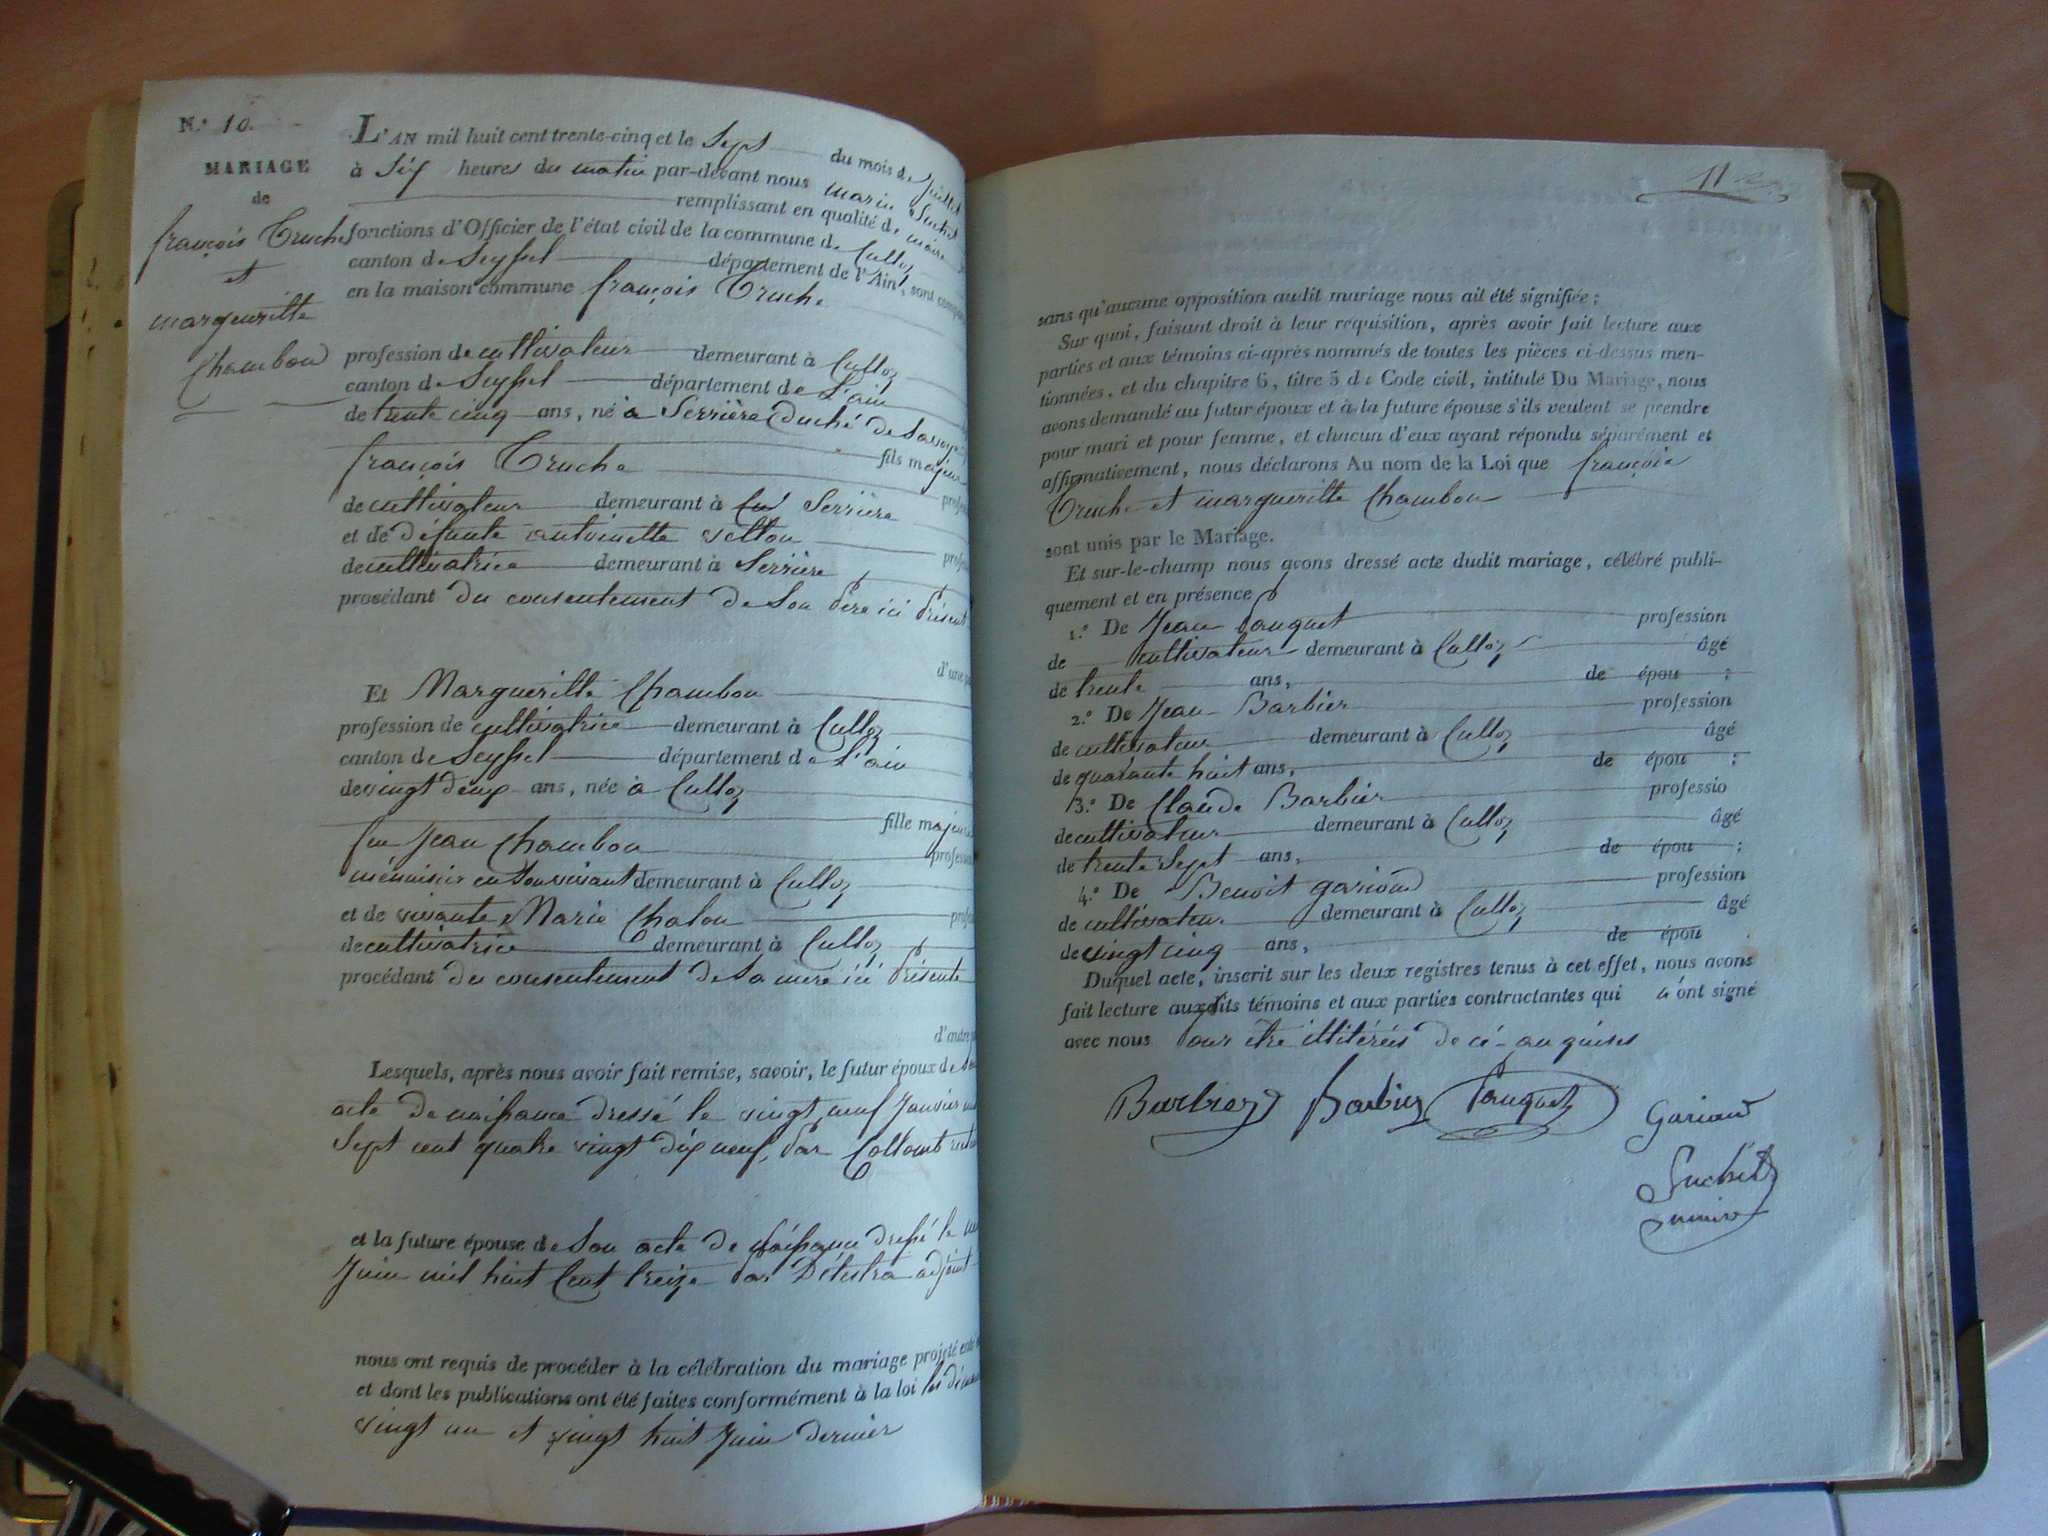 N.° 10.
MARIAGE
de
françois Truche
et
margueritte
Chambou
L'AN mil huit cent trente-cinq et le Sept du mois de Juillet
à Six heures du matin par-devant nous marin Suchet
remplissant en qualité de maire
fonctions d'Officier de l'état civil de la commune de Culloz
canton de Seyssel département de l'Ain, sont compa
en la maison commune françois Truche
profession de cultivateur demeurant à Culloz
canton de Seyssel département de L'ain
de trente cinq ans, né à Serrière Duché de Savoye
fils majeur
françois Truche profes
de cultivateur demeurant à Serrière
et de défunte antoinette Vetton profes
de cultivatrice demeurant à Serrière
procédant du consentement de Son Père ici Présent
d'une pa
Et Margueritte Chambou
profession de cultivatrice demeurant à Culloz
canton de Seyssel département de L'ain
de vingt deux ans, née à Culloz
fille majeure
feu Jean Chambou profession
ménuisier en Son vivant demeurant à Culloz
et de vivante Marie Chalou profes
de cultivatrice demeurant à Culloz
procédant du consentement de Sa mère ici Présente
d'autre pa
Lesquels, après nous avoir fait remise, savoir, le futur époux de Son
acte de naissance dressé le vingt neuf Janvier mil
Sept cent quatre vingt dix neuf, Par Collomb
et la future épouse de Son acte de naissance dressé le
Juin mil huit Cent treize Par Détestra adjoint
nous ont requis de procéder à la célébration du mariage projeté entre
et dont les publications ont été faites conformément à la loi les dimanche
vingt un et vingt huit Juin dernier
11
sans qu'aucune opposition audit mariage nous ait été signifiée;
Sur quoi, faisant droit à leur réquisition, après avoir fait lecture aux
parties et aux témoins ci-après nommés de toutes les pièces ci-dessus men-
tionnées, et du chapitre 6, titre 5 du Code civil, intitulé Du Mariage, nous
avons demandé au futur époux et à la future épouse s'ils veulent se prendre
pour mari et pour femme, et chacun d'eux ayant répondu séparément et
affirmativement, nous déclarons Au nom de la Loi que françois
Truche et margueritte Chambou
sont unis par le Mariage.
Et sur-le-champ nous avons dressé acte dudit mariage, célébré publi-
quement et en présence
1.° De Jean Pauquet profession
de cultivateur demeurant à Culloz âgé
de trente ans, de épou ;
2.° De Jean Barbier profession
de cultivateur demeurant à Culloz âgé
de quarante huit ans, de épou ;
3.° De Claude Barbier professio
de cultivateur demeurant à Culloz âgé
de trente Sept ans, de épou ;
4.° De Benoit gariond profession
de cultivateur demeurant à Culloz âgé
de vingt cinq ans, de épou
Duquel acte, inscrit sur les deux registres tenus à cet effet, nous avons
fait lecture auxdits témoins et aux parties contractantes qui n'ont signé
avec nous Pour être illitérés de cé anquises
Barbier Barbier Pauquet
Gariond
Suchet
maire